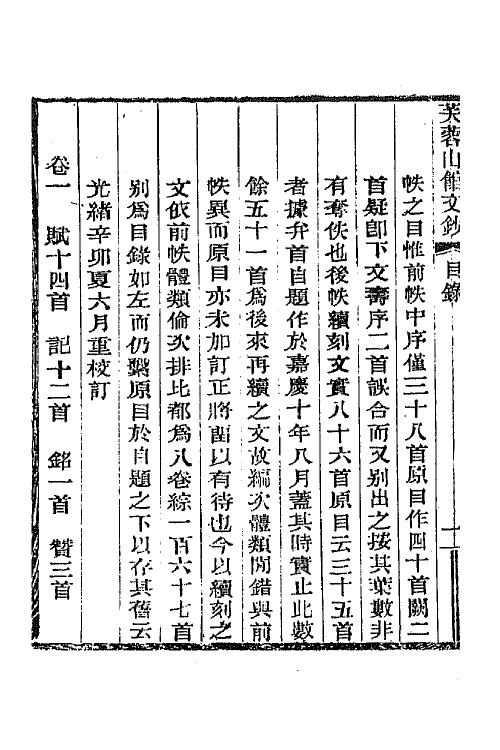 芙蓉山館文鈔 目錄 二
帙之目惟前帙中序僅三十八首原目作四十首闕二
首疑卽下文壽序二首誤合而又别出之按其葉數非
有奪佚也後帙續刻文實八十六首原目云三十五首
者據弁首自題作於嘉慶十年八月蓋其時實止此數
餘五十一首爲後來再續之文故編次體類閒錯與前
帙異而原目亦未加訂正將留以有待也今以續刻之
文依前帙體類倫次排比都爲八卷綜一百六十七首
别爲目錄如左而仍繫原目於自題之下以存其舊云
光緒辛卯夏六月重校訂
卷一 賦十四首 記十二首 銘一首 贊三首